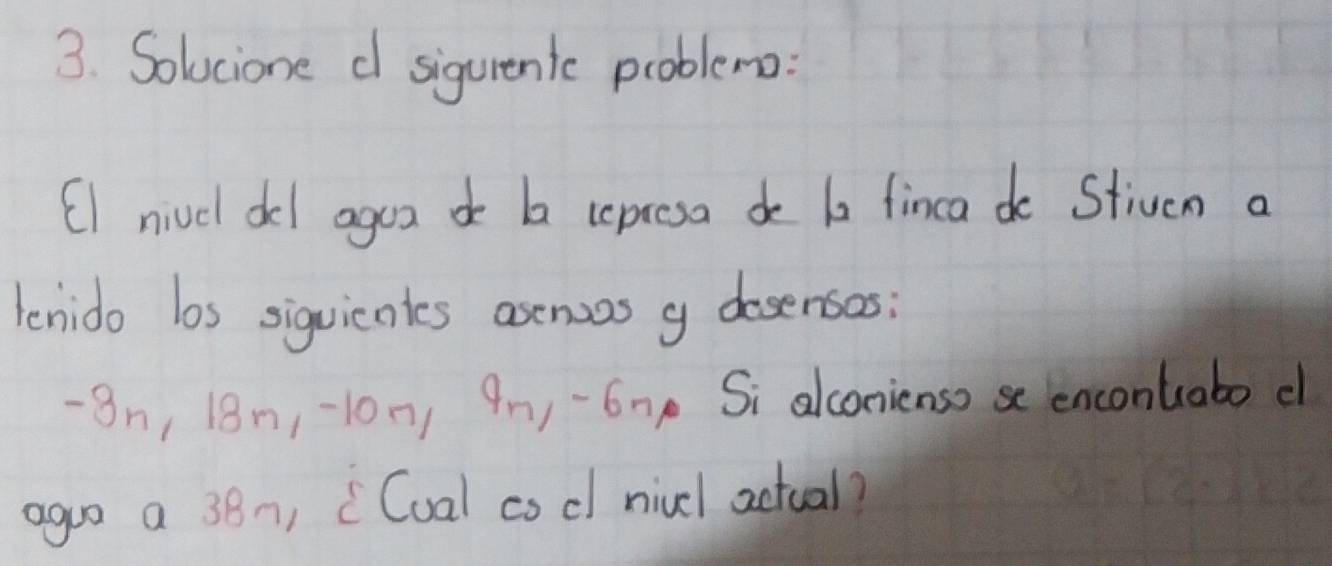 3. Solucione el siguiente problema:
El nivel del agua de la represa de la finca de Stiven a
tenido los siguientes asensos y desensos:
-8m, 18m, -10m, 9m, -6m, Si alcomienso se encontrabo el
agua a 38m, ¿Cual es el nivel actual?